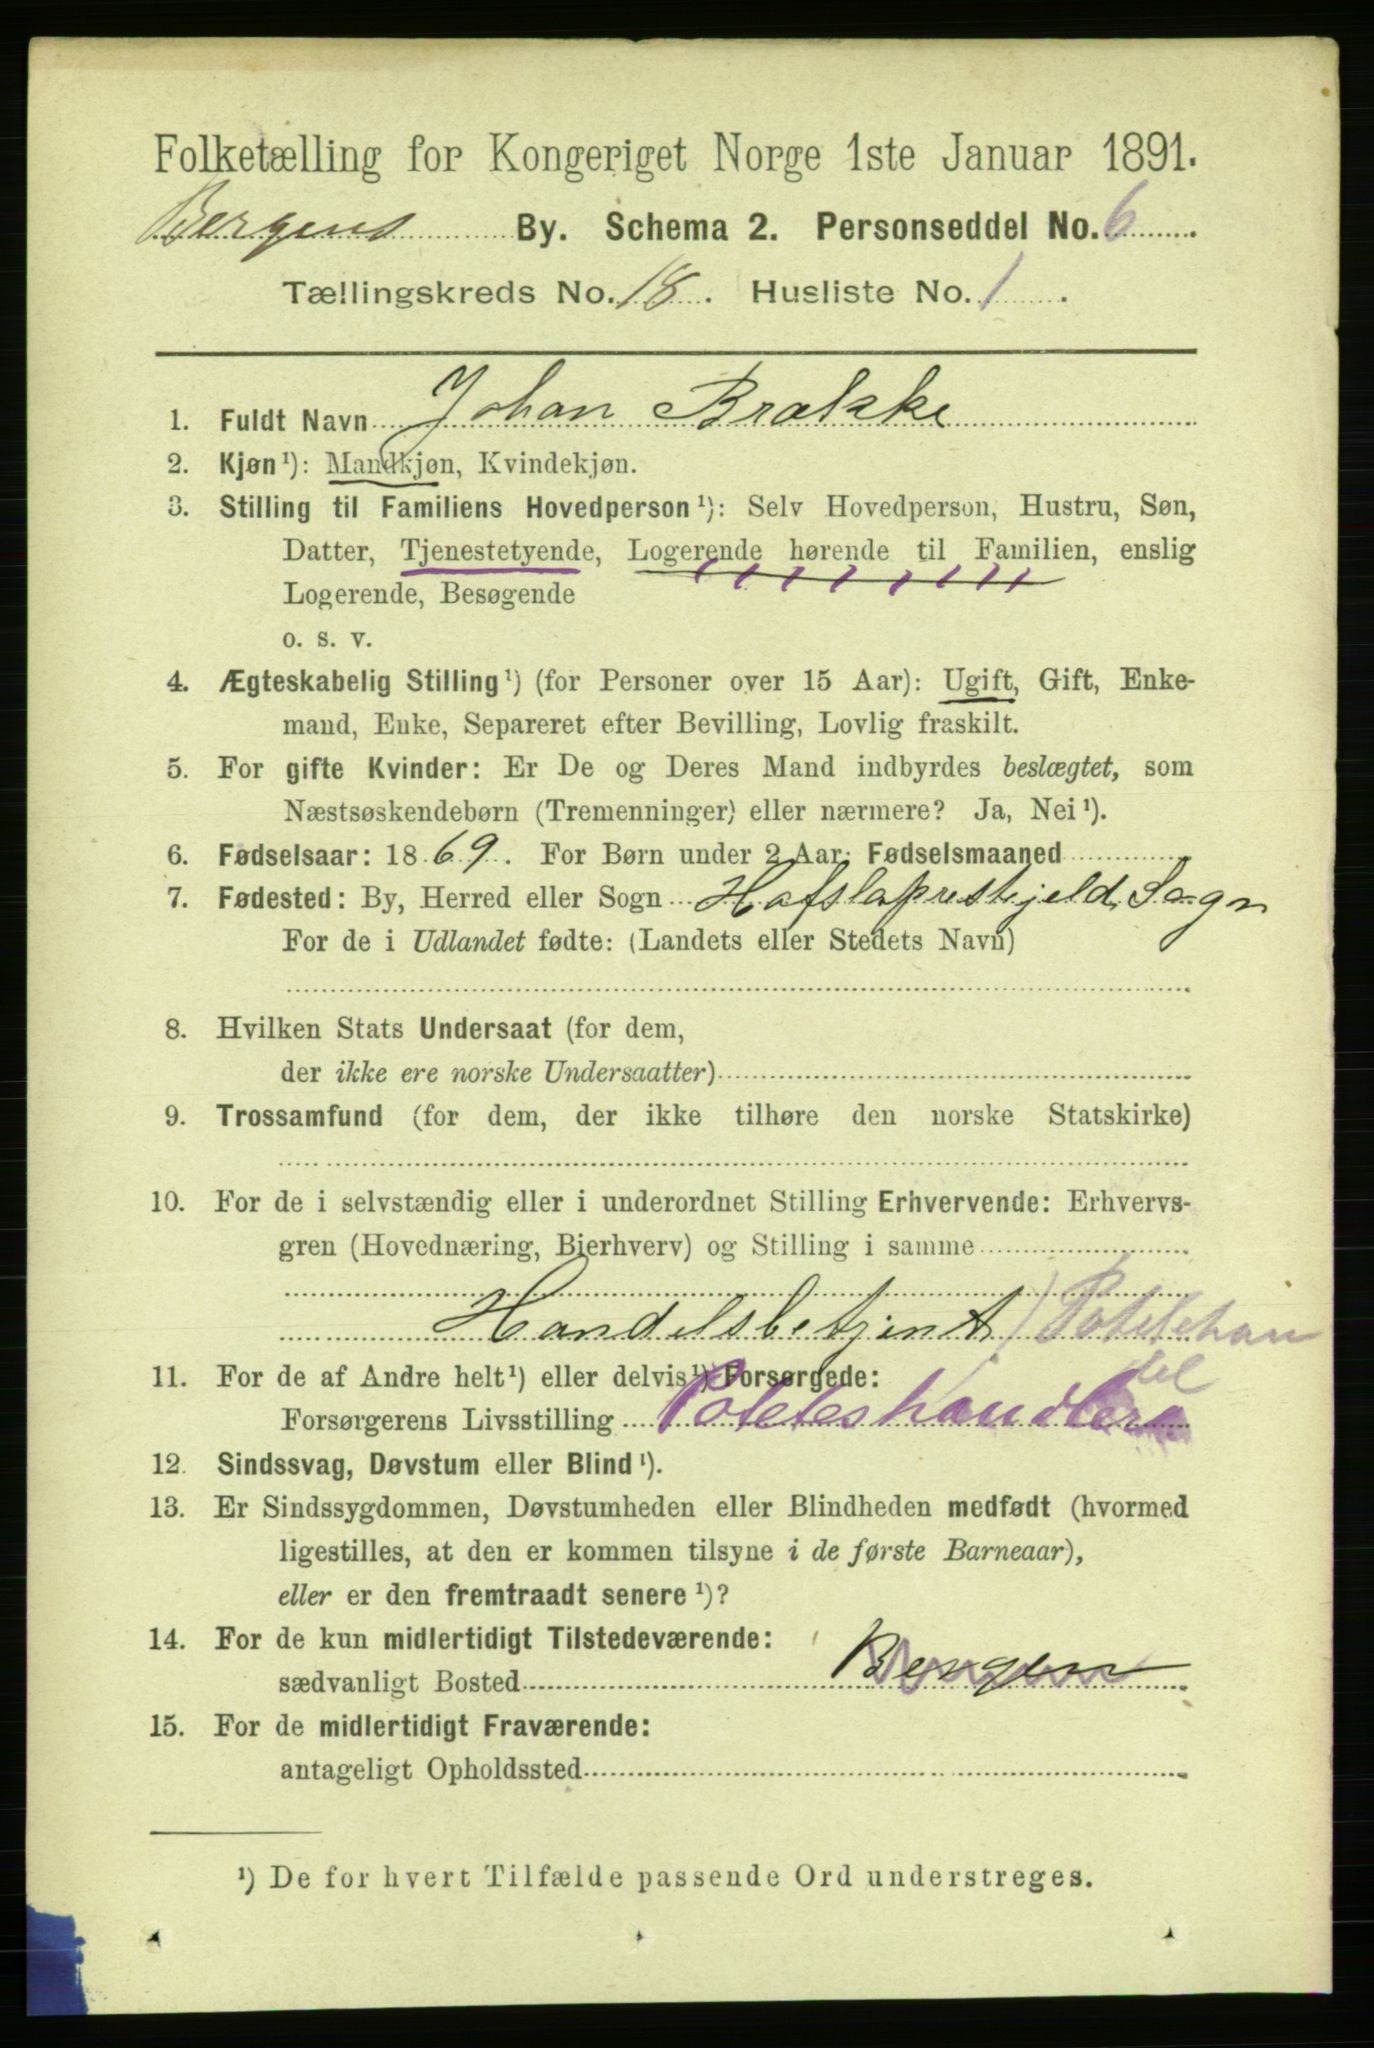 Folketælling for Kongeriget Norge 1ste Januar 1891.
Bergens By. Schema 2. Personseddel No. 6
Tællingskreds No. 18. Husliste No. 1.
1. Fuldt Navn Johan Brække
2. Kjøn¹): Mandkjøn, Kvindekjøn.
3. Stilling til Familiens Hovedperson¹): Selv Hovedperson, Hustru, Søn,
Datter, Tjenestetyende, Logerende hørende til Familien, enslig
Logerende, Besøgende
o. s. v.
4. Ægteskabelig Stilling¹) (for Personer over 15 Aar): Ugift, Gift, Enke-
mand, Enke, Separeret efter Bevilling, Lovlig fraskilt.
5. For gifte Kvinder: Er De og Deres Mand indbyrdes beslægtet, som
Næstsøskendebørn (Tremenninger) eller nærmere? Ja, Nei¹).
6. Fødselsaar: 1869. For Børn under 2 Aar: Fødselsmaaned
7. Fødested: By, Herred eller Sogn Hafsloprestgjeld, Sogn
For de i Udlandet fødte: (Landets eller Stedets Navn)
8. Hvilken Stats Undersaat (for dem,
der ikke ere norske Undersaatter)
9. Trossamfund (for dem, der ikke tilhøre den norske Statskirke)
10. For de i selvstændig eller i underordnet Stilling Erhvervende: Erhvervs-
gren (Hovednæring, Bierhverv) og Stilling i samme
Handelsbetjent / Potetehan
del
11. For de af Andre helt¹) eller delvis¹) Forsørgede:
Forsørgerens Livsstilling Poteteshandlere
12. Sindssvag, Døvstum eller Blind¹).
13. Er Sindssygdommen, Døvstumheden eller Blindheden medfødt (hvormed
ligestilles, at den er kommen tilsyne i de første Barneaar),
eller er den fremtraadt senere¹)?
14. For de kun midlertidigt Tilstedeværende:
sædvanligt Bosted Bergen
15. For de midlertidigt Fraværende:
antageligt Opholdssted
¹) De for hvert Tilfælde passende Ord understreges.